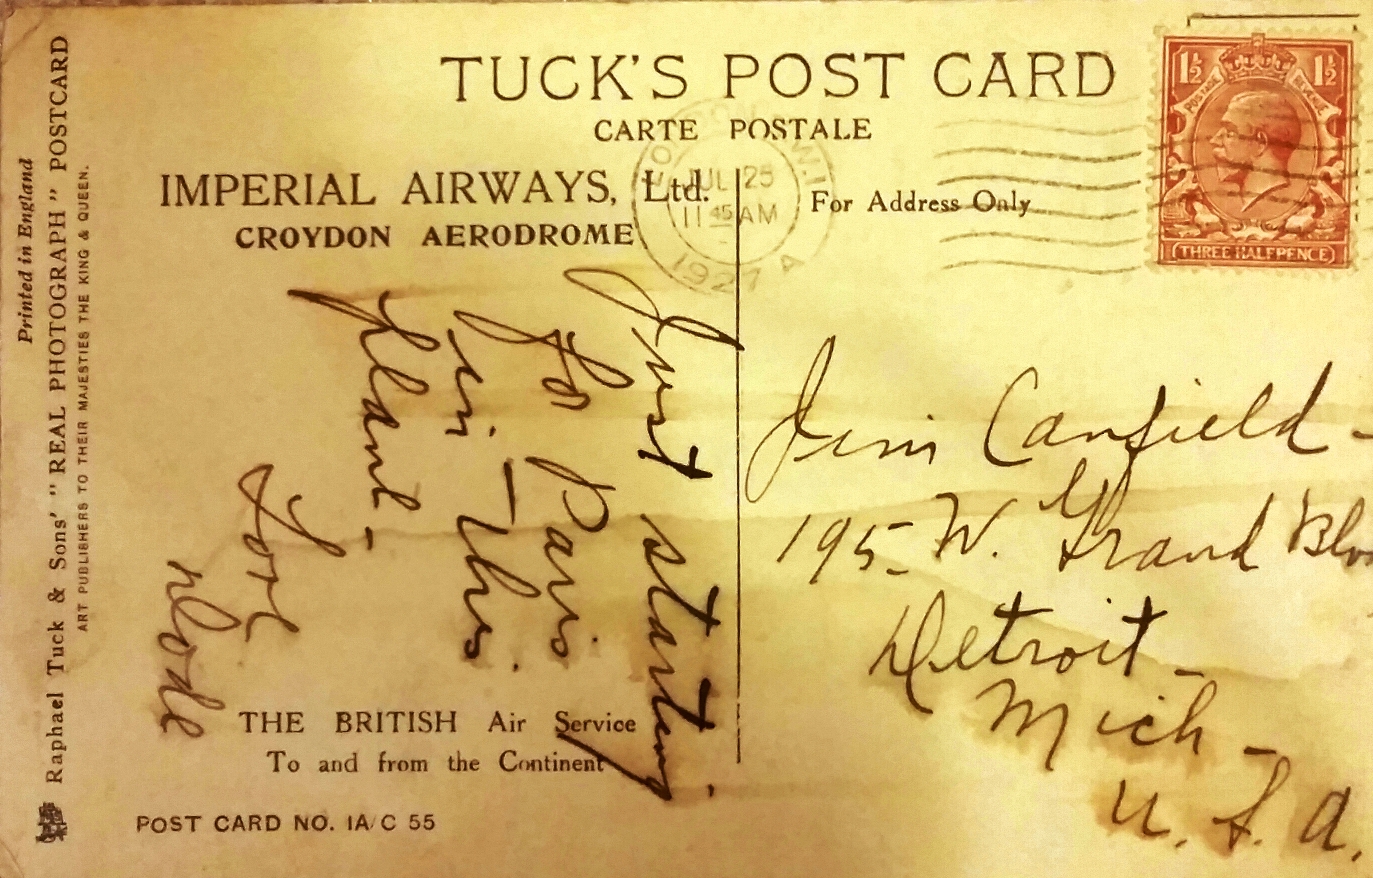 TUCK'S POST CARD
CARTE POSTALE
IMPERIAL AIRWAYS, Ltd.
CROYDON AERODROME
For Address Only
JUL 25
11 45 AM
1927 A
1½ 1½
POSTAGE REVENUE
THREE HALFPENCE
Just starting
for Paris
in this
plane -
Love
Jim Canfield -
195 W. Grand Blv
Detroit -
Mich -
U. S. A.
THE BRITISH Air Service
To and from the Continent
POST CARD NO. IA/C 55
Printed in England
Raphael Tuck & Sons' "REAL PHOTOGRAPH" POSTCARD
ART PUBLISHERS TO THEIR MAJESTIES THE KING & QUEEN.